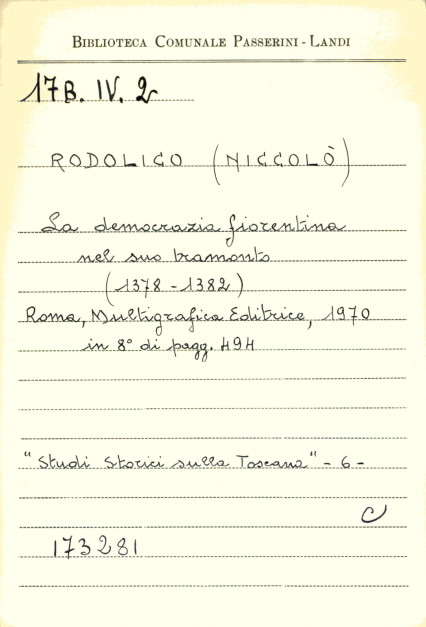 BIBLIOTECA COMUNALE PASSERINI - LANDI
17B. IV. 2
RODOLICO (NICCOLÒ)
La democrazia fiorentina
nel suo tramonto
(1378 - 1382)
Roma, Multigrafica Editrice, 1970
in 8° di pagg. 494
"Studi Storici sulla Toscana" - 6 -
C
173281